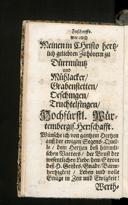 Zuschrifft.
wie auch
Meinen in Christo hertz-
lich geliebten Zuhörern zu
Dürrmüntz
und
Mühlacker/
Grabenstetten/
Oeschingen/
Truchtelfingen/
Hochfürstl. Wür-
tembergis. Herrschafft.
Wünsche ich von gantzem Hertzen
auß der ewigen Segens-Quel-
le/ dem Hertzen deß himmli-
schen Vatters/ der Brust der
wesentlichen Liebe/ dem Strom
deß H. Geistes/ Gnade/ Barm-
hertzigkeit/ Leben und volle
Genüge in Zeit und Ewigkeit!
Werth-